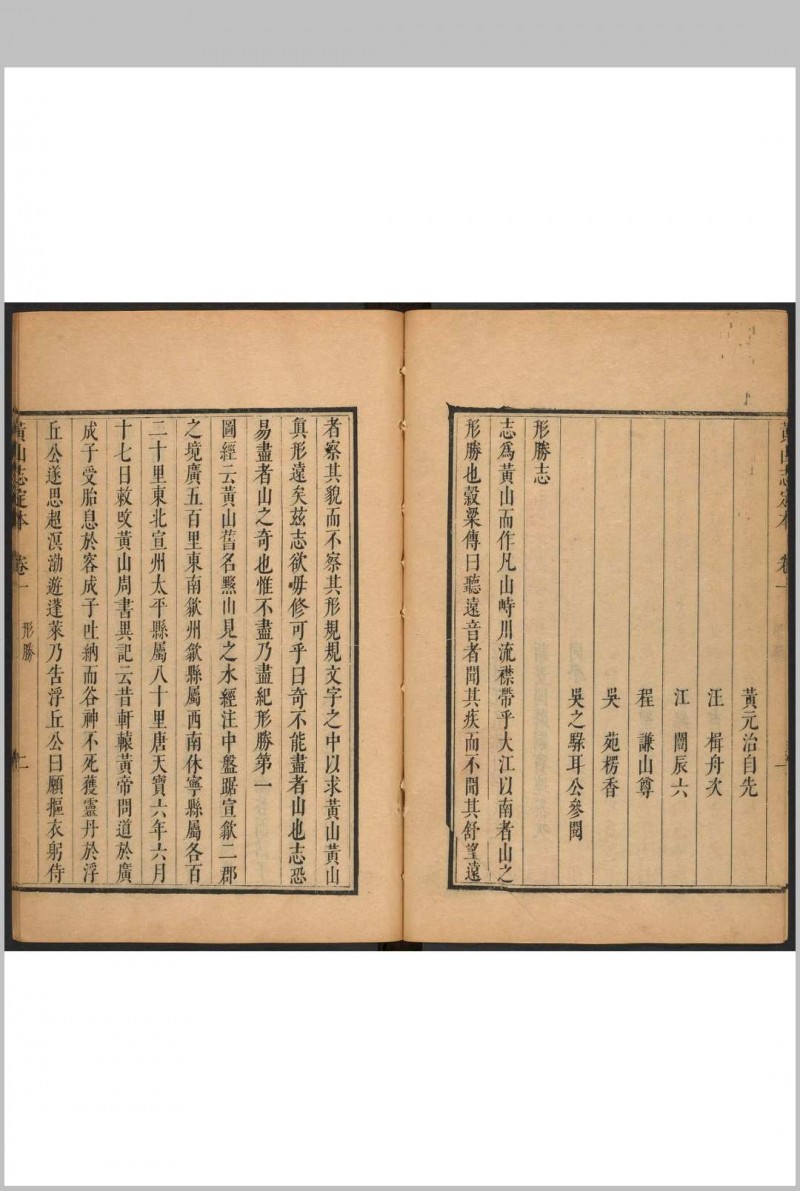 黃元治自先
汪　楫舟次
江　闓辰六
程　謙山尊
吳　苑楞香
吳之騄耳公參閱
形勝志
志爲黃山而作凡山峙川流襟帶乎大江以南者山之
形勝也穀梁傳曰聽遠音者聞其疾而不聞其舒望遠
黃山志定本　卷一　一
者察其貌而不察其形規規文字之中以求黃山黃山
眞形遠矣茲志欲毋修可乎曰奇不能盡者山也志恐
易盡者山之奇也惟不盡乃盡紀形勝第一
圖經云黃山舊名黟山見之水經注中盤踞宣歙二郡
之境廣五百里東南歙州歙縣屬西南休寧縣屬各百
二十里東北宣州太平縣屬八十里唐天寶六年六月
十七日敕改黃山周書異記云昔軒轅黃帝問道於廣
成子受胎息於容成子吐納而谷神不死獲靈丹於浮
丘公遂思超溟渤遊蓬萊乃告浮丘公曰願摳衣躬侍
黃山志定本　卷一　形勝　二